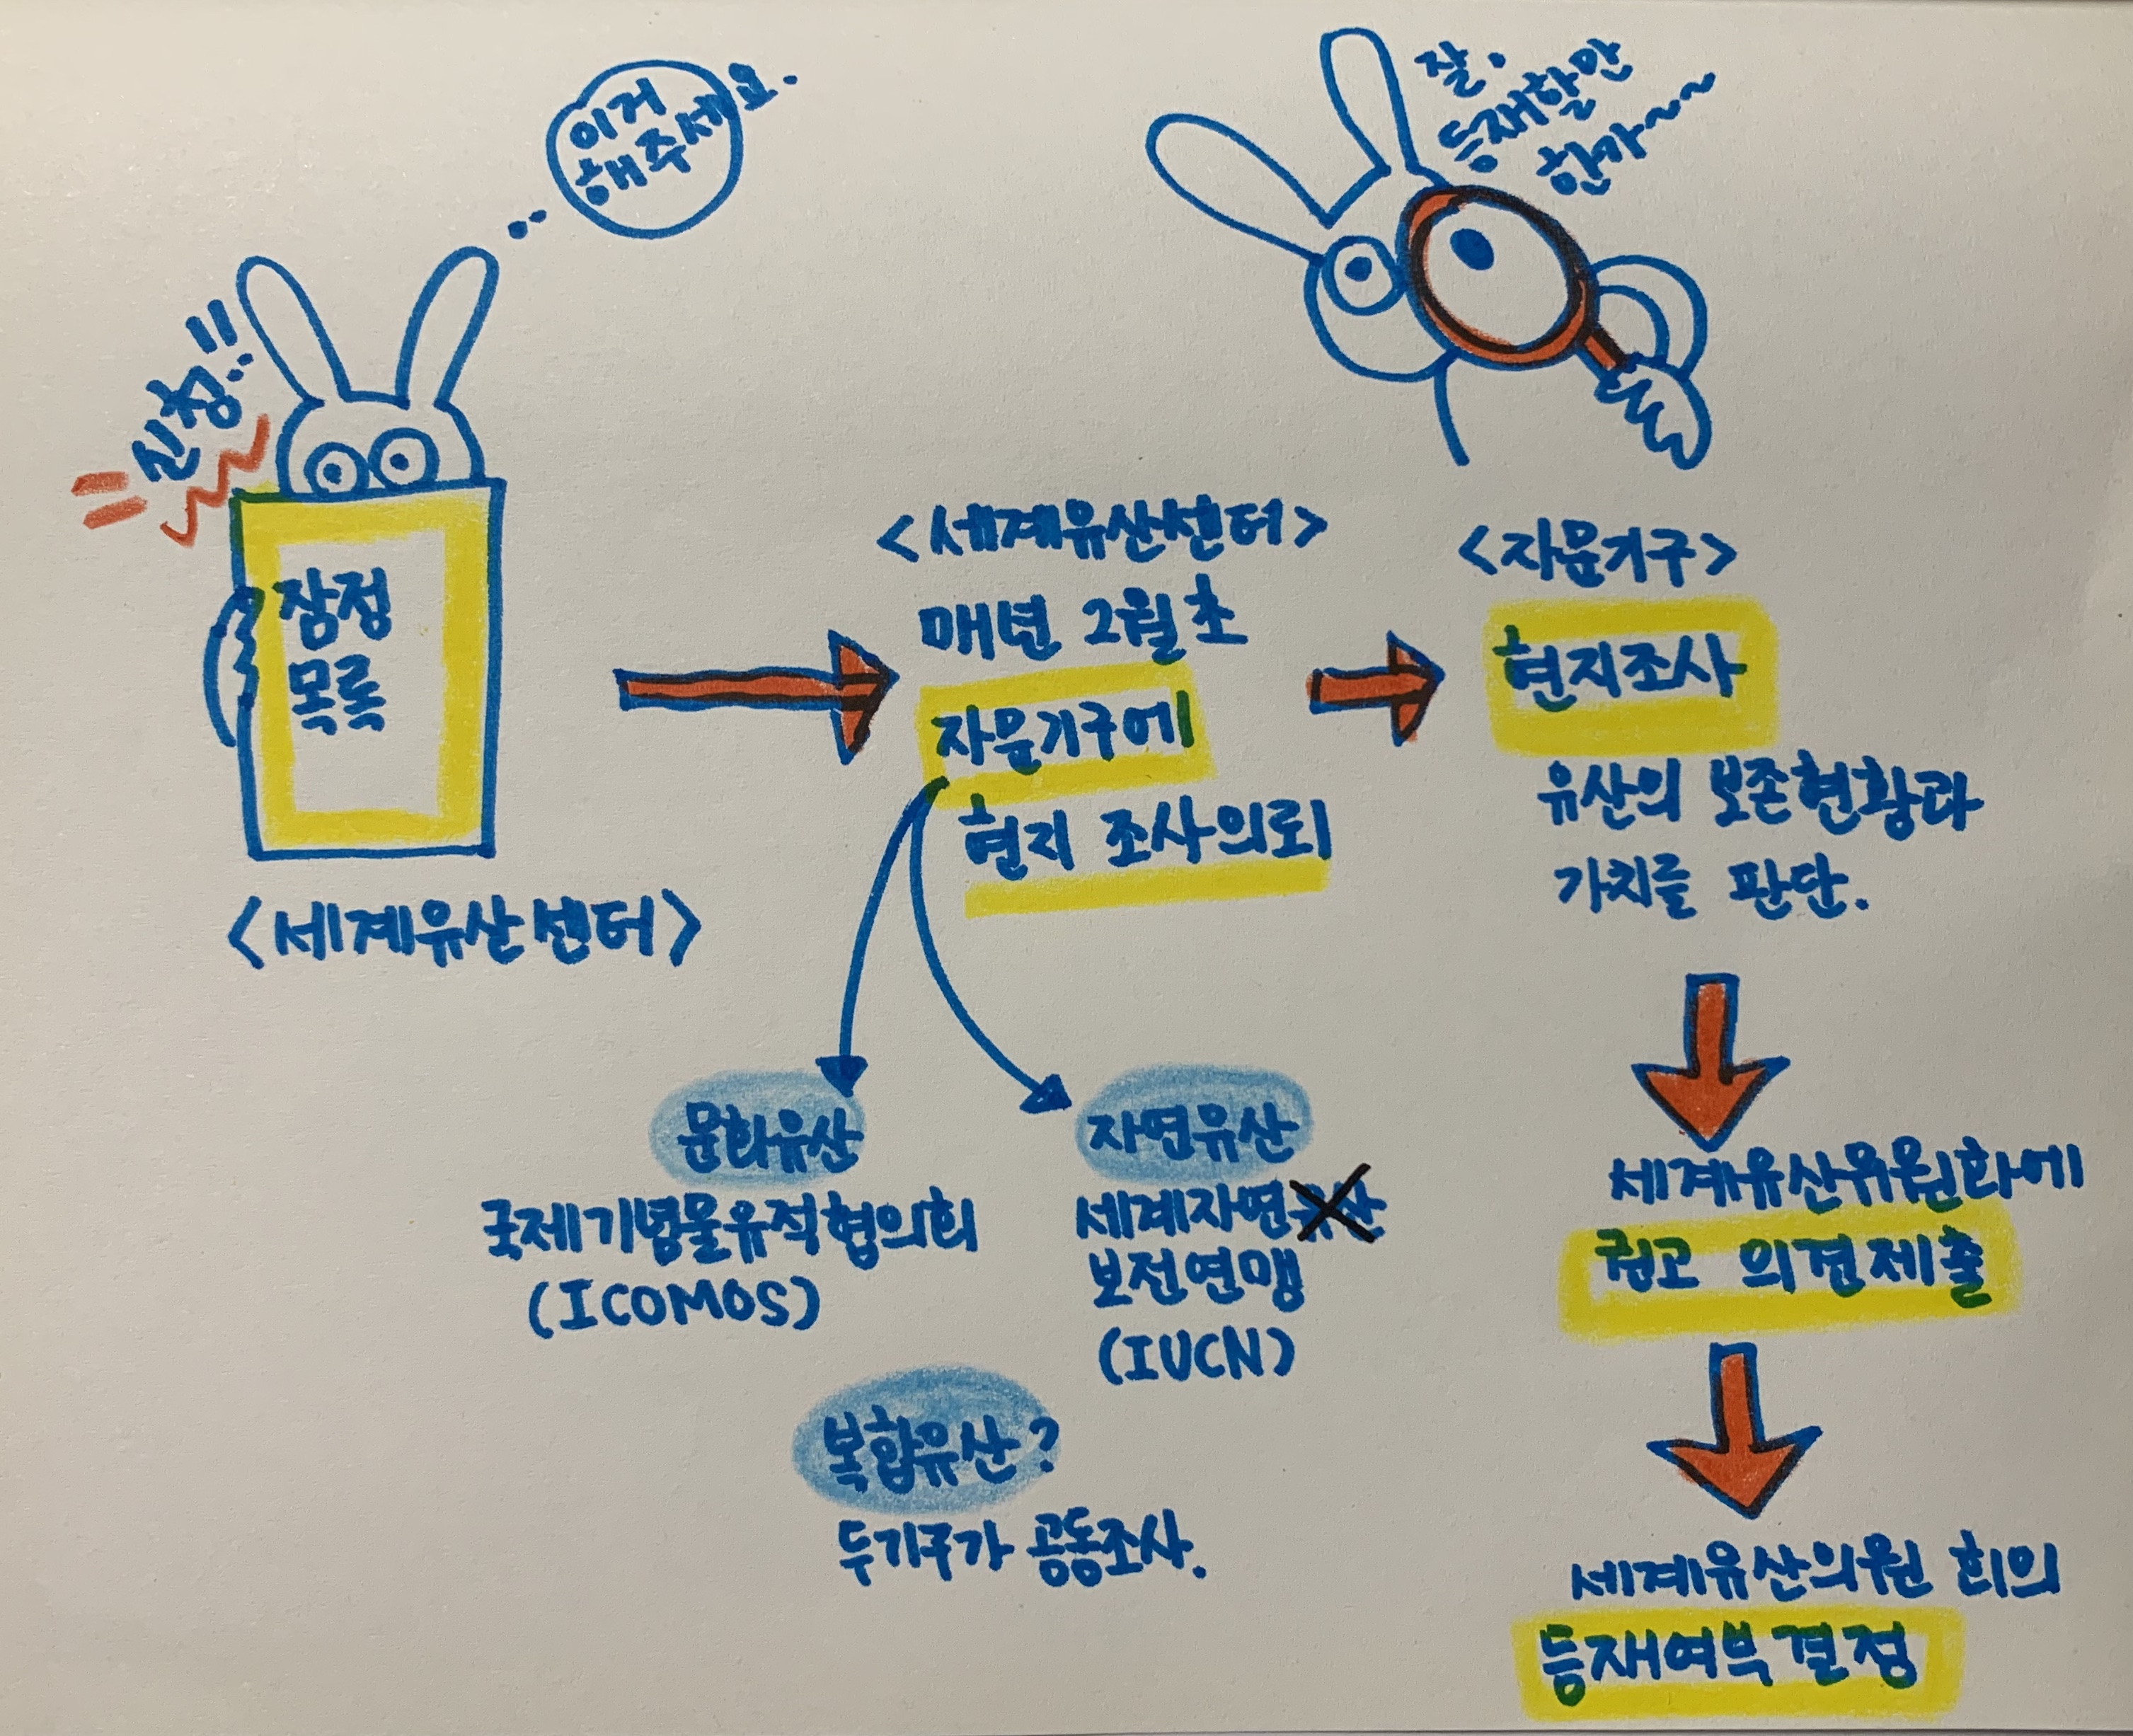 이거
해주세요.
신청!!
잠정
목록
<세계유산센터>
<세계유산센터>
매년 2월 초
자문기구에
현지 조사의뢰
문화유산
국제기념물유적협의회
(ICOMOS)
자연유산
세계자연유산
보전연맹
(IUCN)
복합유산?
두기구가 공동조사.
잘.
등재할만
한가~~
<자문기구>
현지조사
유산의 보존현황과
가치를 판단.
세계유산위원화에
권고 의견제출
세계유산의원 회의
등재여부결정